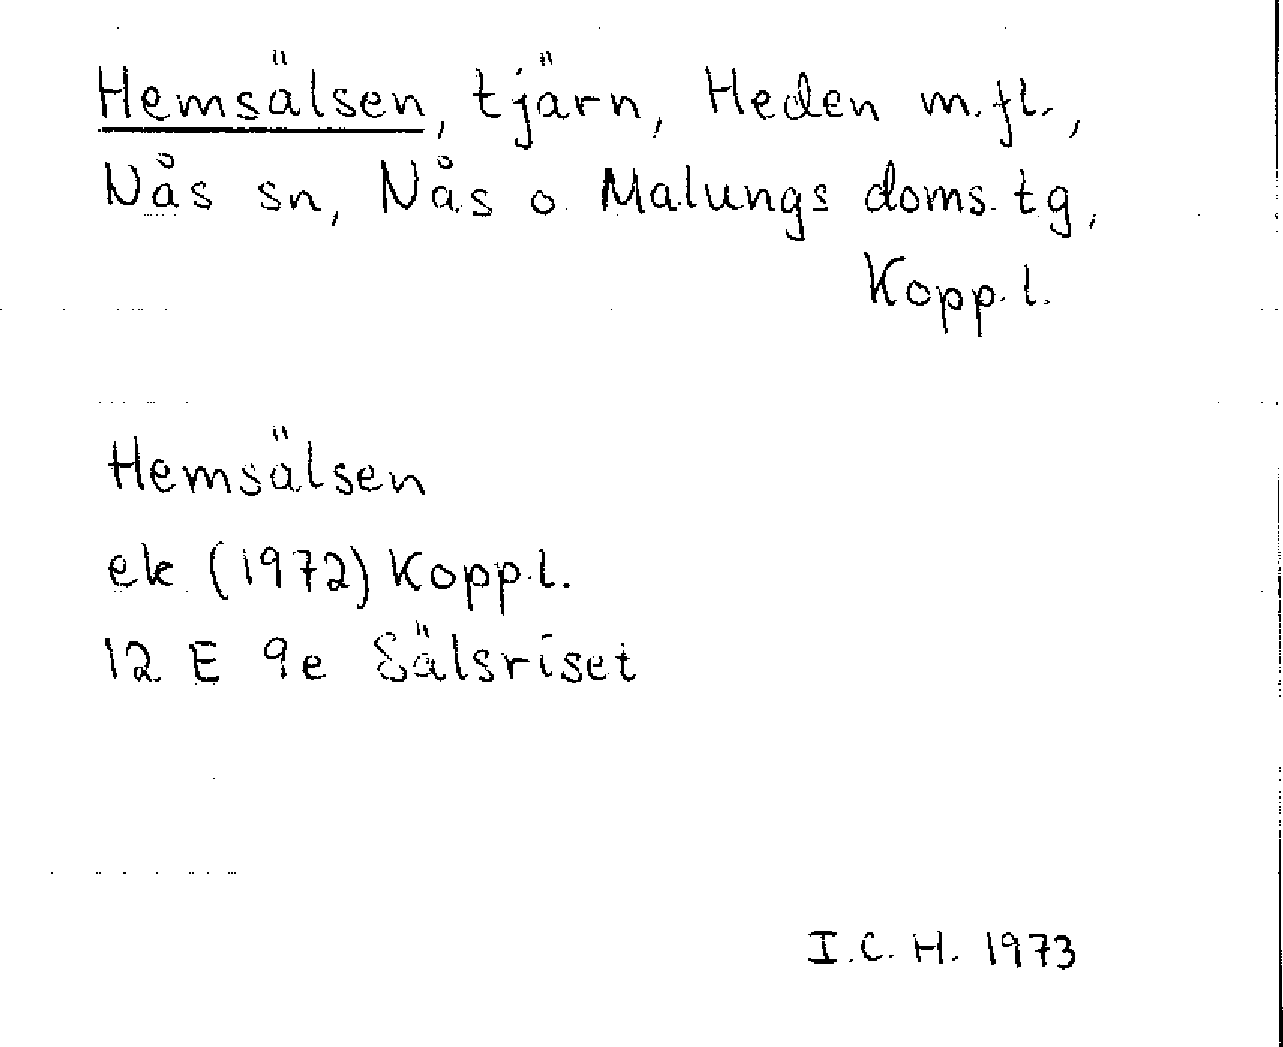 Hemsälsen, tjärn, Heden m.fl.,
Nås sn, Nås o. Malungs doms.tg,
Kopp.l.
Hemsälsen
ek (1972) Kopp.l.
12 E 9e Sälsriset
I.C.H. 1973